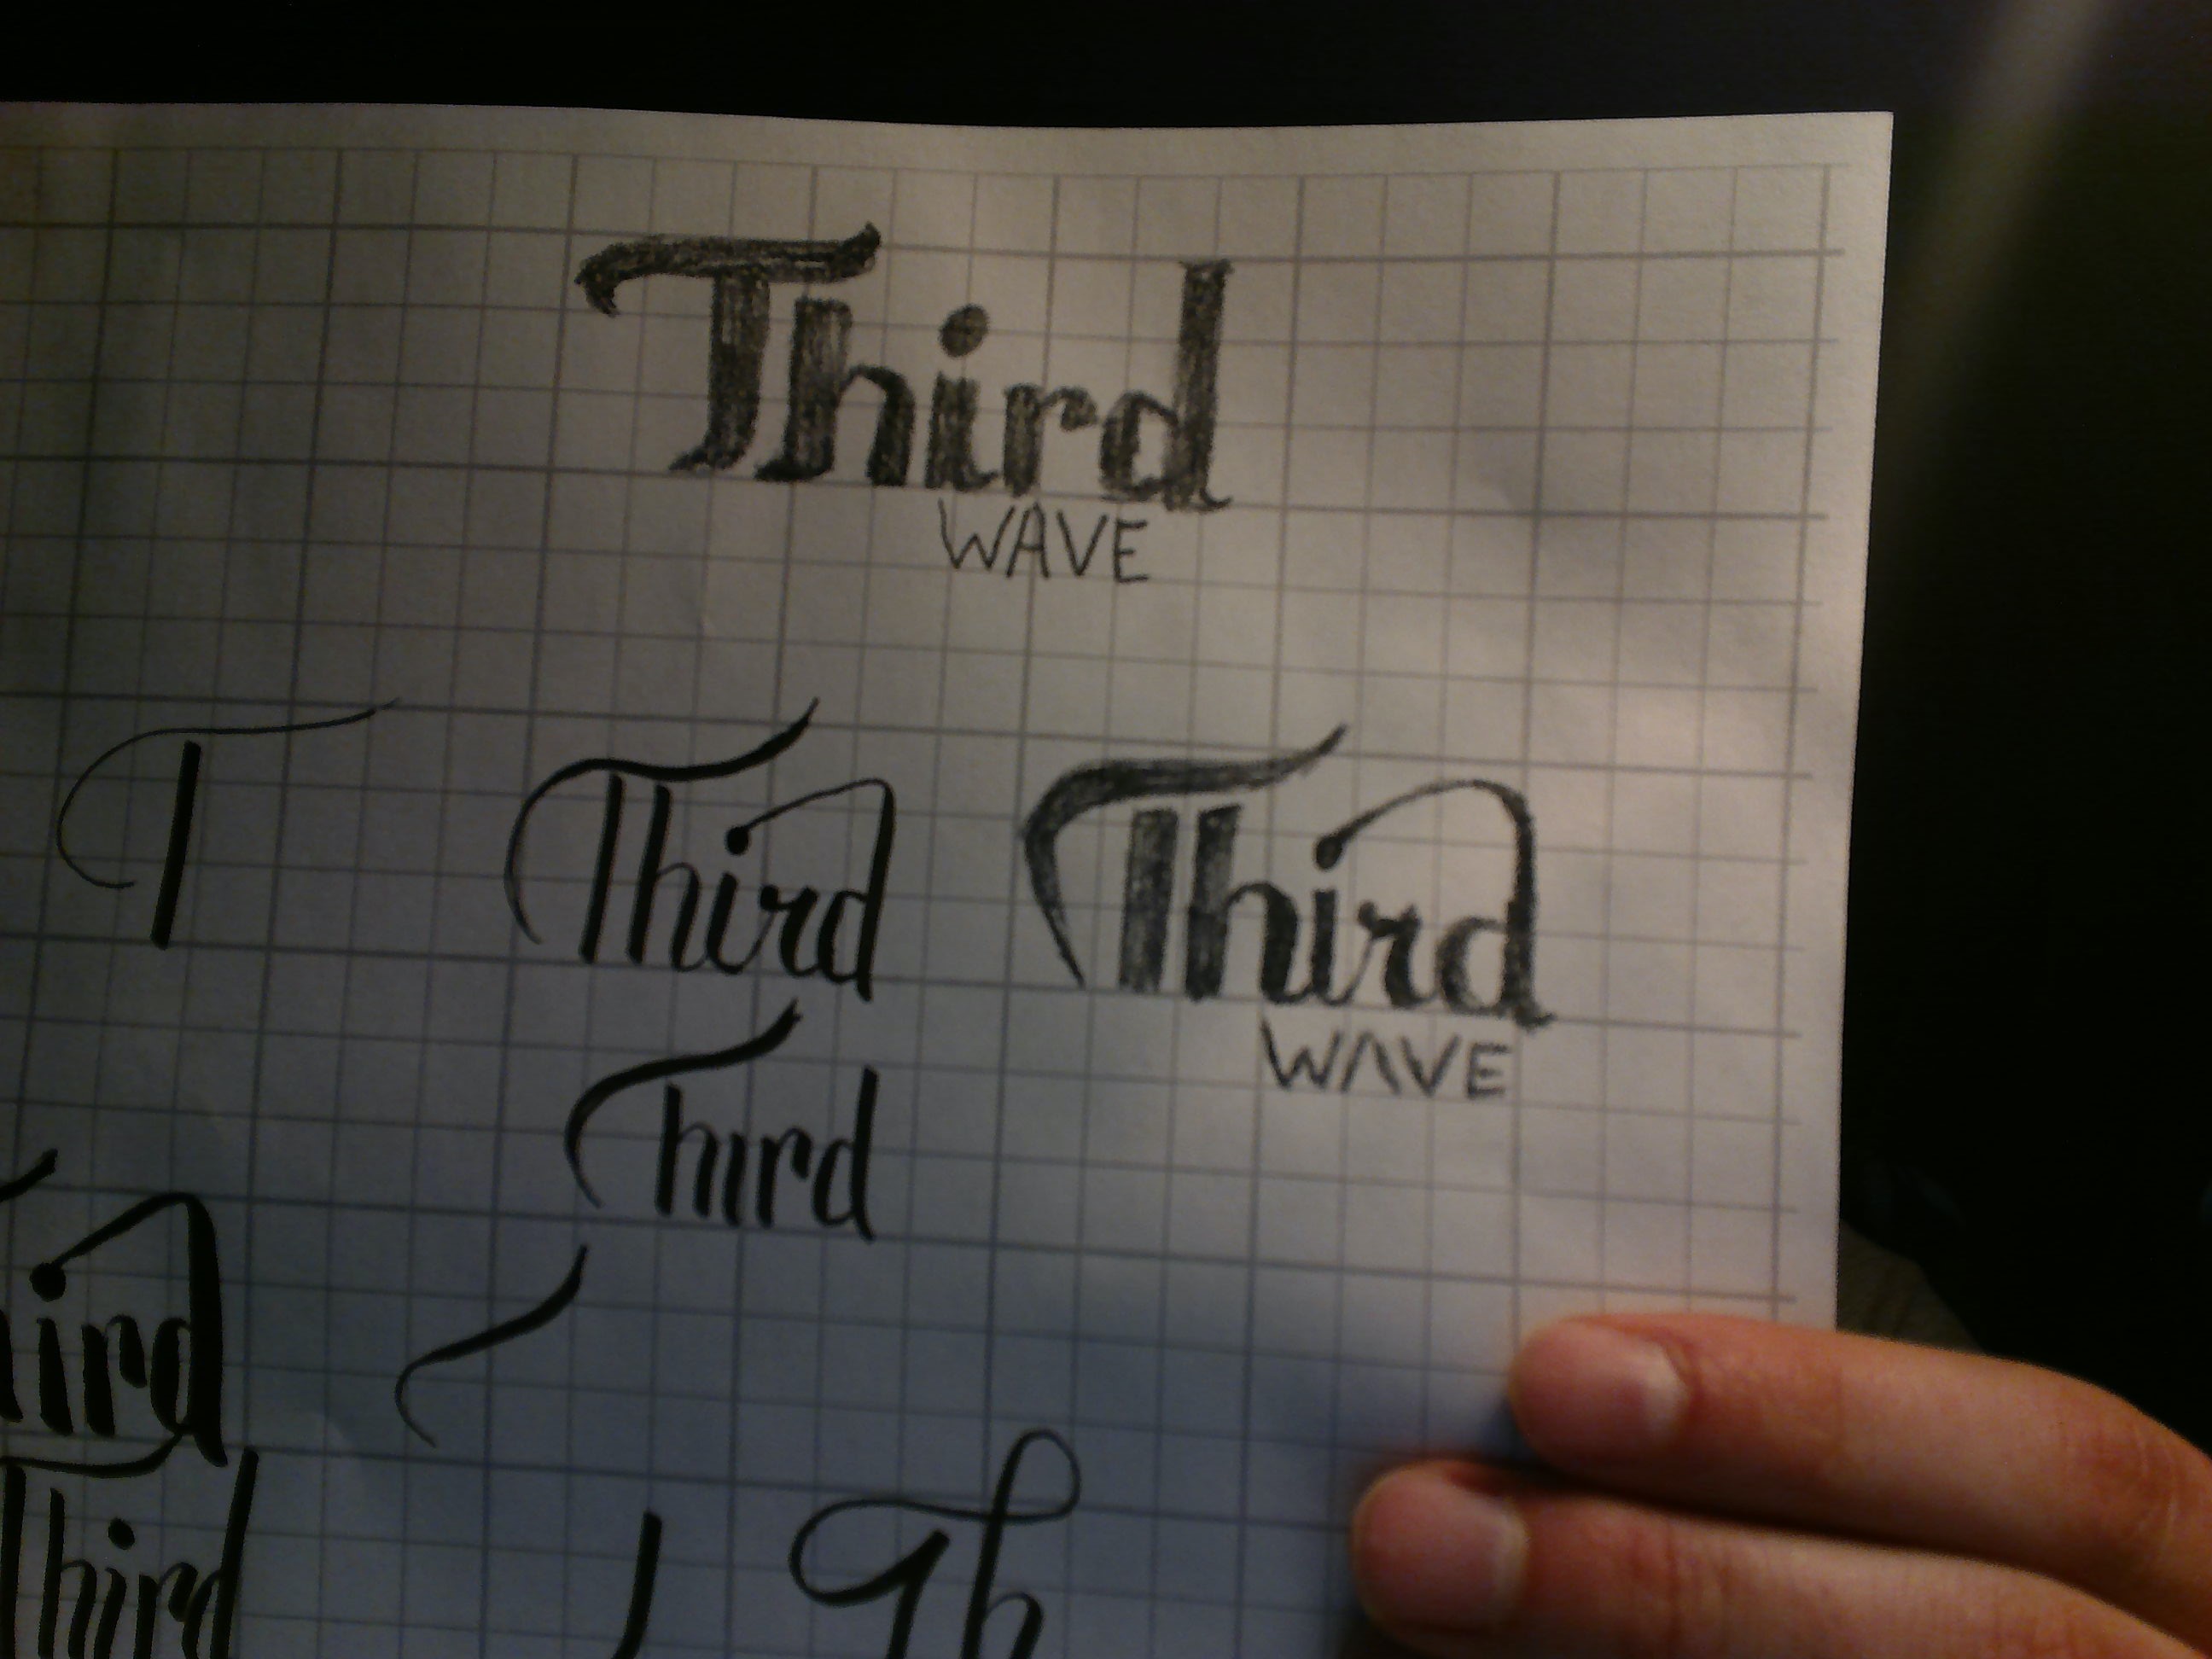 Third
WAVE
T
Third
Third
WAVE
Third
ird
Third
Th